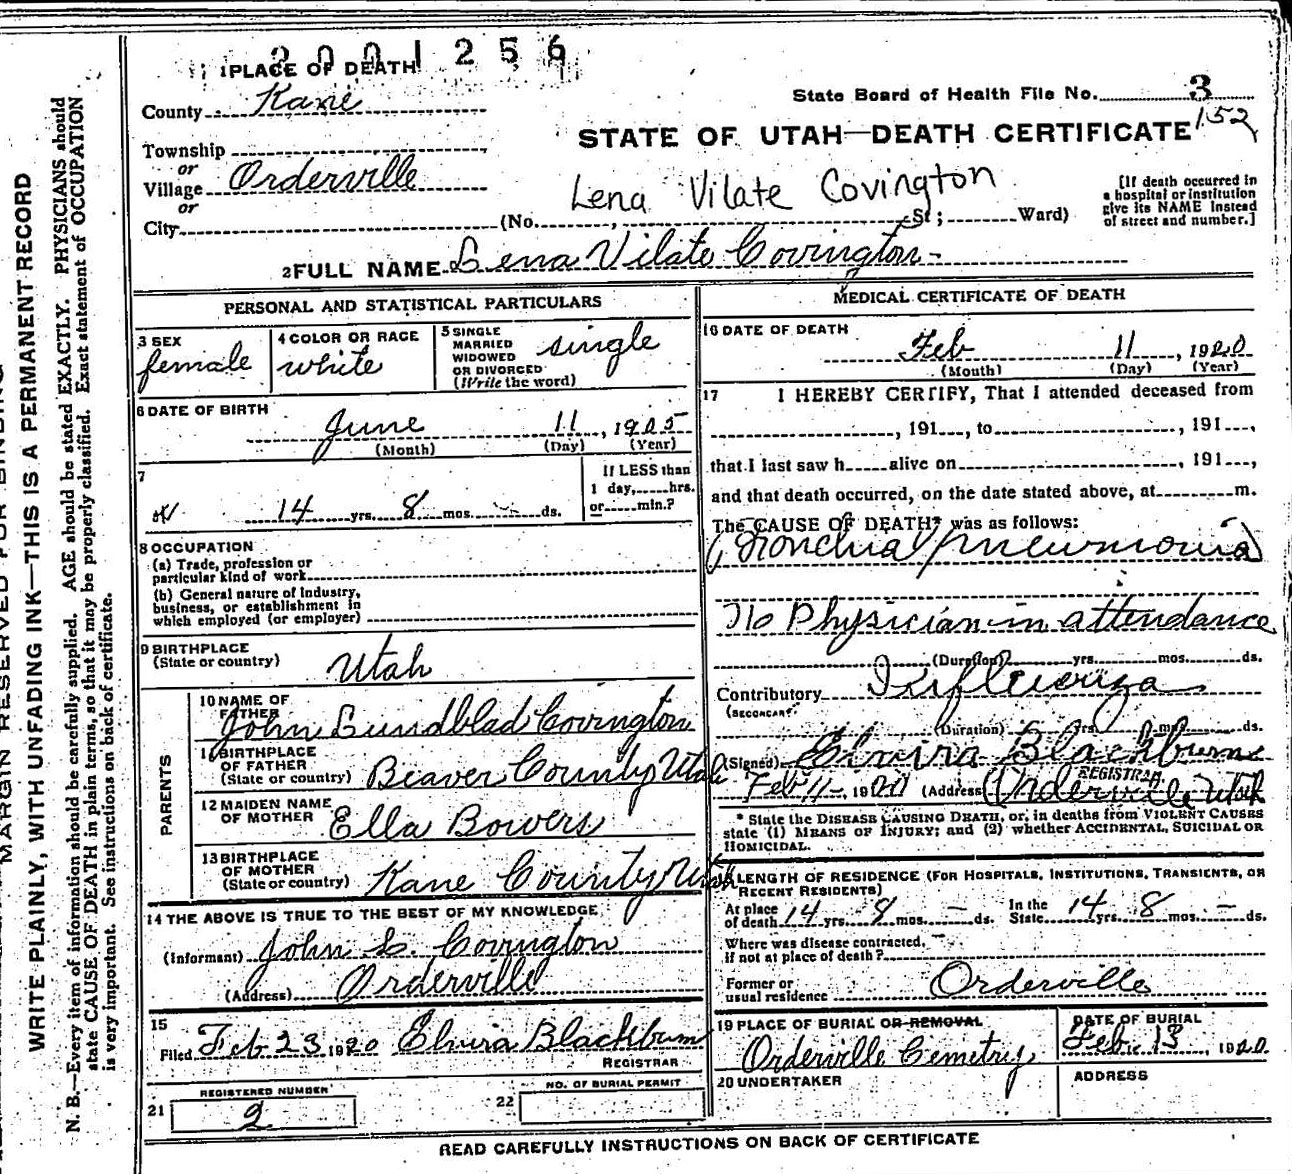 2001256
1 PLACE OF DEATH
County Kane
State Board of Health File No. 3
152
STATE OF UTAH—DEATH CERTIFICATE
Township
or
Village Orderville
or
City
Lena Vilate Covington
(No. , St; Ward)
[If death occurred in
a hospital or institution
give its NAME instead
of street and number.]
2 FULL NAME Lena Vilate Covington
MARGIN RESERVED FOR BINDING
WRITE PLAINLY, WITH UNFADING INK—THIS IS A PERMANENT RECORD
N. B.—Every item of information should be carefully supplied. AGE should be stated EXACTLY. PHYSICIANS should
state CAUSE OF DEATH in plain terms, so that it may be properly classified. Exact statement of OCCUPATION
is very important. See instructions on back of certificate.
PERSONAL AND STATISTICAL PARTICULARS
3 SEX
female
4 COLOR OR RACE
white
5 SINGLE
MARRIED
WIDOWED
OR DIVORCED
(Write the word)
single
6 DATE OF BIRTH
June 11, 1905
(Month) (Day) (Year)
7
14 yrs. 8 mos. - ds.
If LESS than
1 day, hrs.
or min.?
8 OCCUPATION
(a) Trade, profession or
particular kind of work
(b) General nature of Industry,
business, or establishment in
which employed (or employer)
9 BIRTHPLACE
(State or country)
Utah
PARENTS
10 NAME OF
FATHER
John Lundblad Covington
11 BIRTHPLACE
OF FATHER
(State or country)
Beaver County Utah
12 MAIDEN NAME
OF MOTHER
Ella Bowers
13 BIRTHPLACE
OF MOTHER
(State or country)
Kane County Utah
14 THE ABOVE IS TRUE TO THE BEST OF MY KNOWLEDGE
(Informant) John L. Covington
(Address) Orderville
15
Filed Feb 23 1920 Elvira Blackburn
REGISTRAR
REGISTERED NUMBER
21 2
NO. OF BURIAL PERMIT
22
MEDICAL CERTIFICATE OF DEATH
16 DATE OF DEATH
Feb 11, 1920
(Month) (Day) (Year)
17 I HEREBY CERTIFY, That I attended deceased from
, 191 , to , 191 ,
that I last saw h alive on , 191 ,
and that death occurred, on the date stated above, at m.
The CAUSE OF DEATH* was as follows:
Bronchial pneumonia
No Physician in attendance
(Duration) yrs. mos. ds.
Contributory Influenza
(SECONDARY)
(Duration) yrs. mos. ds.
(Signed) Elvira Blackburn
REGISTRAR
Feb 11-, 1920 (Address) Orderville Utah
* State the DISEASE CAUSING DEATH, or, in deaths from VIOLENT CAUSES
state (1) MEANS OF INJURY; and (2) whether ACCIDENTAL, SUICIDAL OR
HOMICIDAL.
18 LENGTH OF RESIDENCE (FOR HOSPITALS, INSTITUTIONS, TRANSIENTS, OR
RECENT RESIDENTS)
At place
of death 14 yrs. 8 mos. - ds.
In the
State 14 yrs. 8 mos. - ds.
Where was disease contracted,
if not at place of death? -
Former or
usual residence Orderville
19 PLACE OF BURIAL OR REMOVAL
Orderville Cemetry
DATE OF BURIAL
Feb. 13, 1920
20 UNDERTAKER
ADDRESS
READ CAREFULLY INSTRUCTIONS ON BACK OF CERTIFICATE